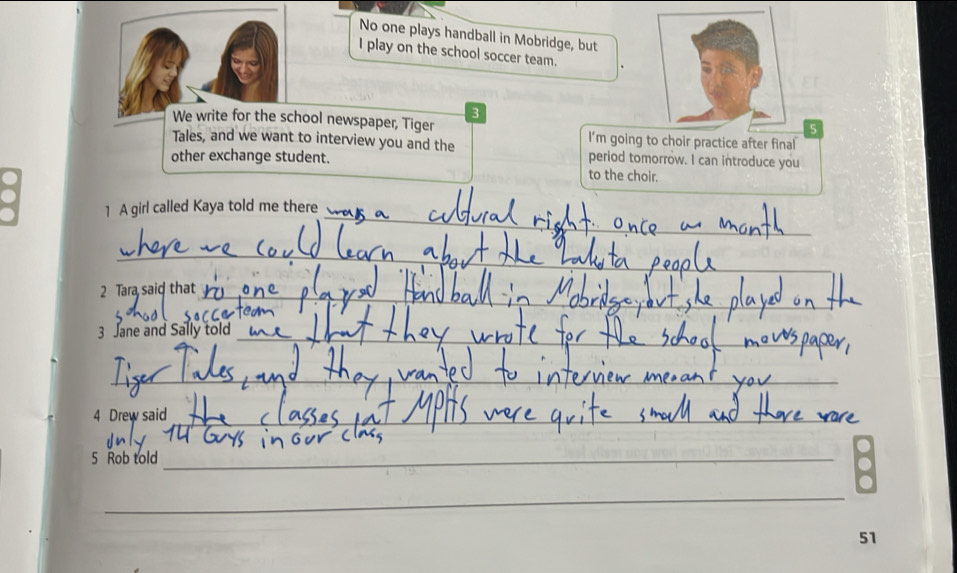 No one plays handball in Mobridge, but
I play on the school soccer team.
We write for the school newspaper, Tiger
Tales, and we want to interview you and the
other exchange student.
3
I'm going to choir practice after final
period tomorrow. I can introduce you
to the choir.
5
1 A girl called Kaya told me there was a cultural right once a month
where we could learn about the Lakota people
2 Tara said that no one played Handball in Mobridge, but she played on the
school soccer team
3 Jane and Sally told me that they wrote for the school newspaper,
Tiger Tales, and they wanted to interview me and you
4 Drew said the classes at MPHS were quite small and there were
only 14 Guys in our class
5 Rob told
51